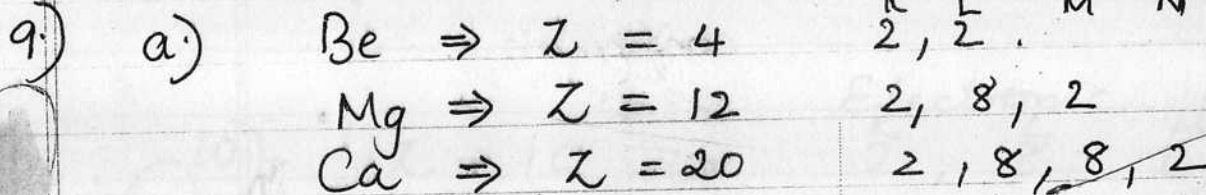 K L M N
9.) a.) Be ⇒ Z = 4 2, 2.
Mg ⇒ Z = 12 2, 8, 2
Ca ⇒ Z = 20 2, 8, 8, 2